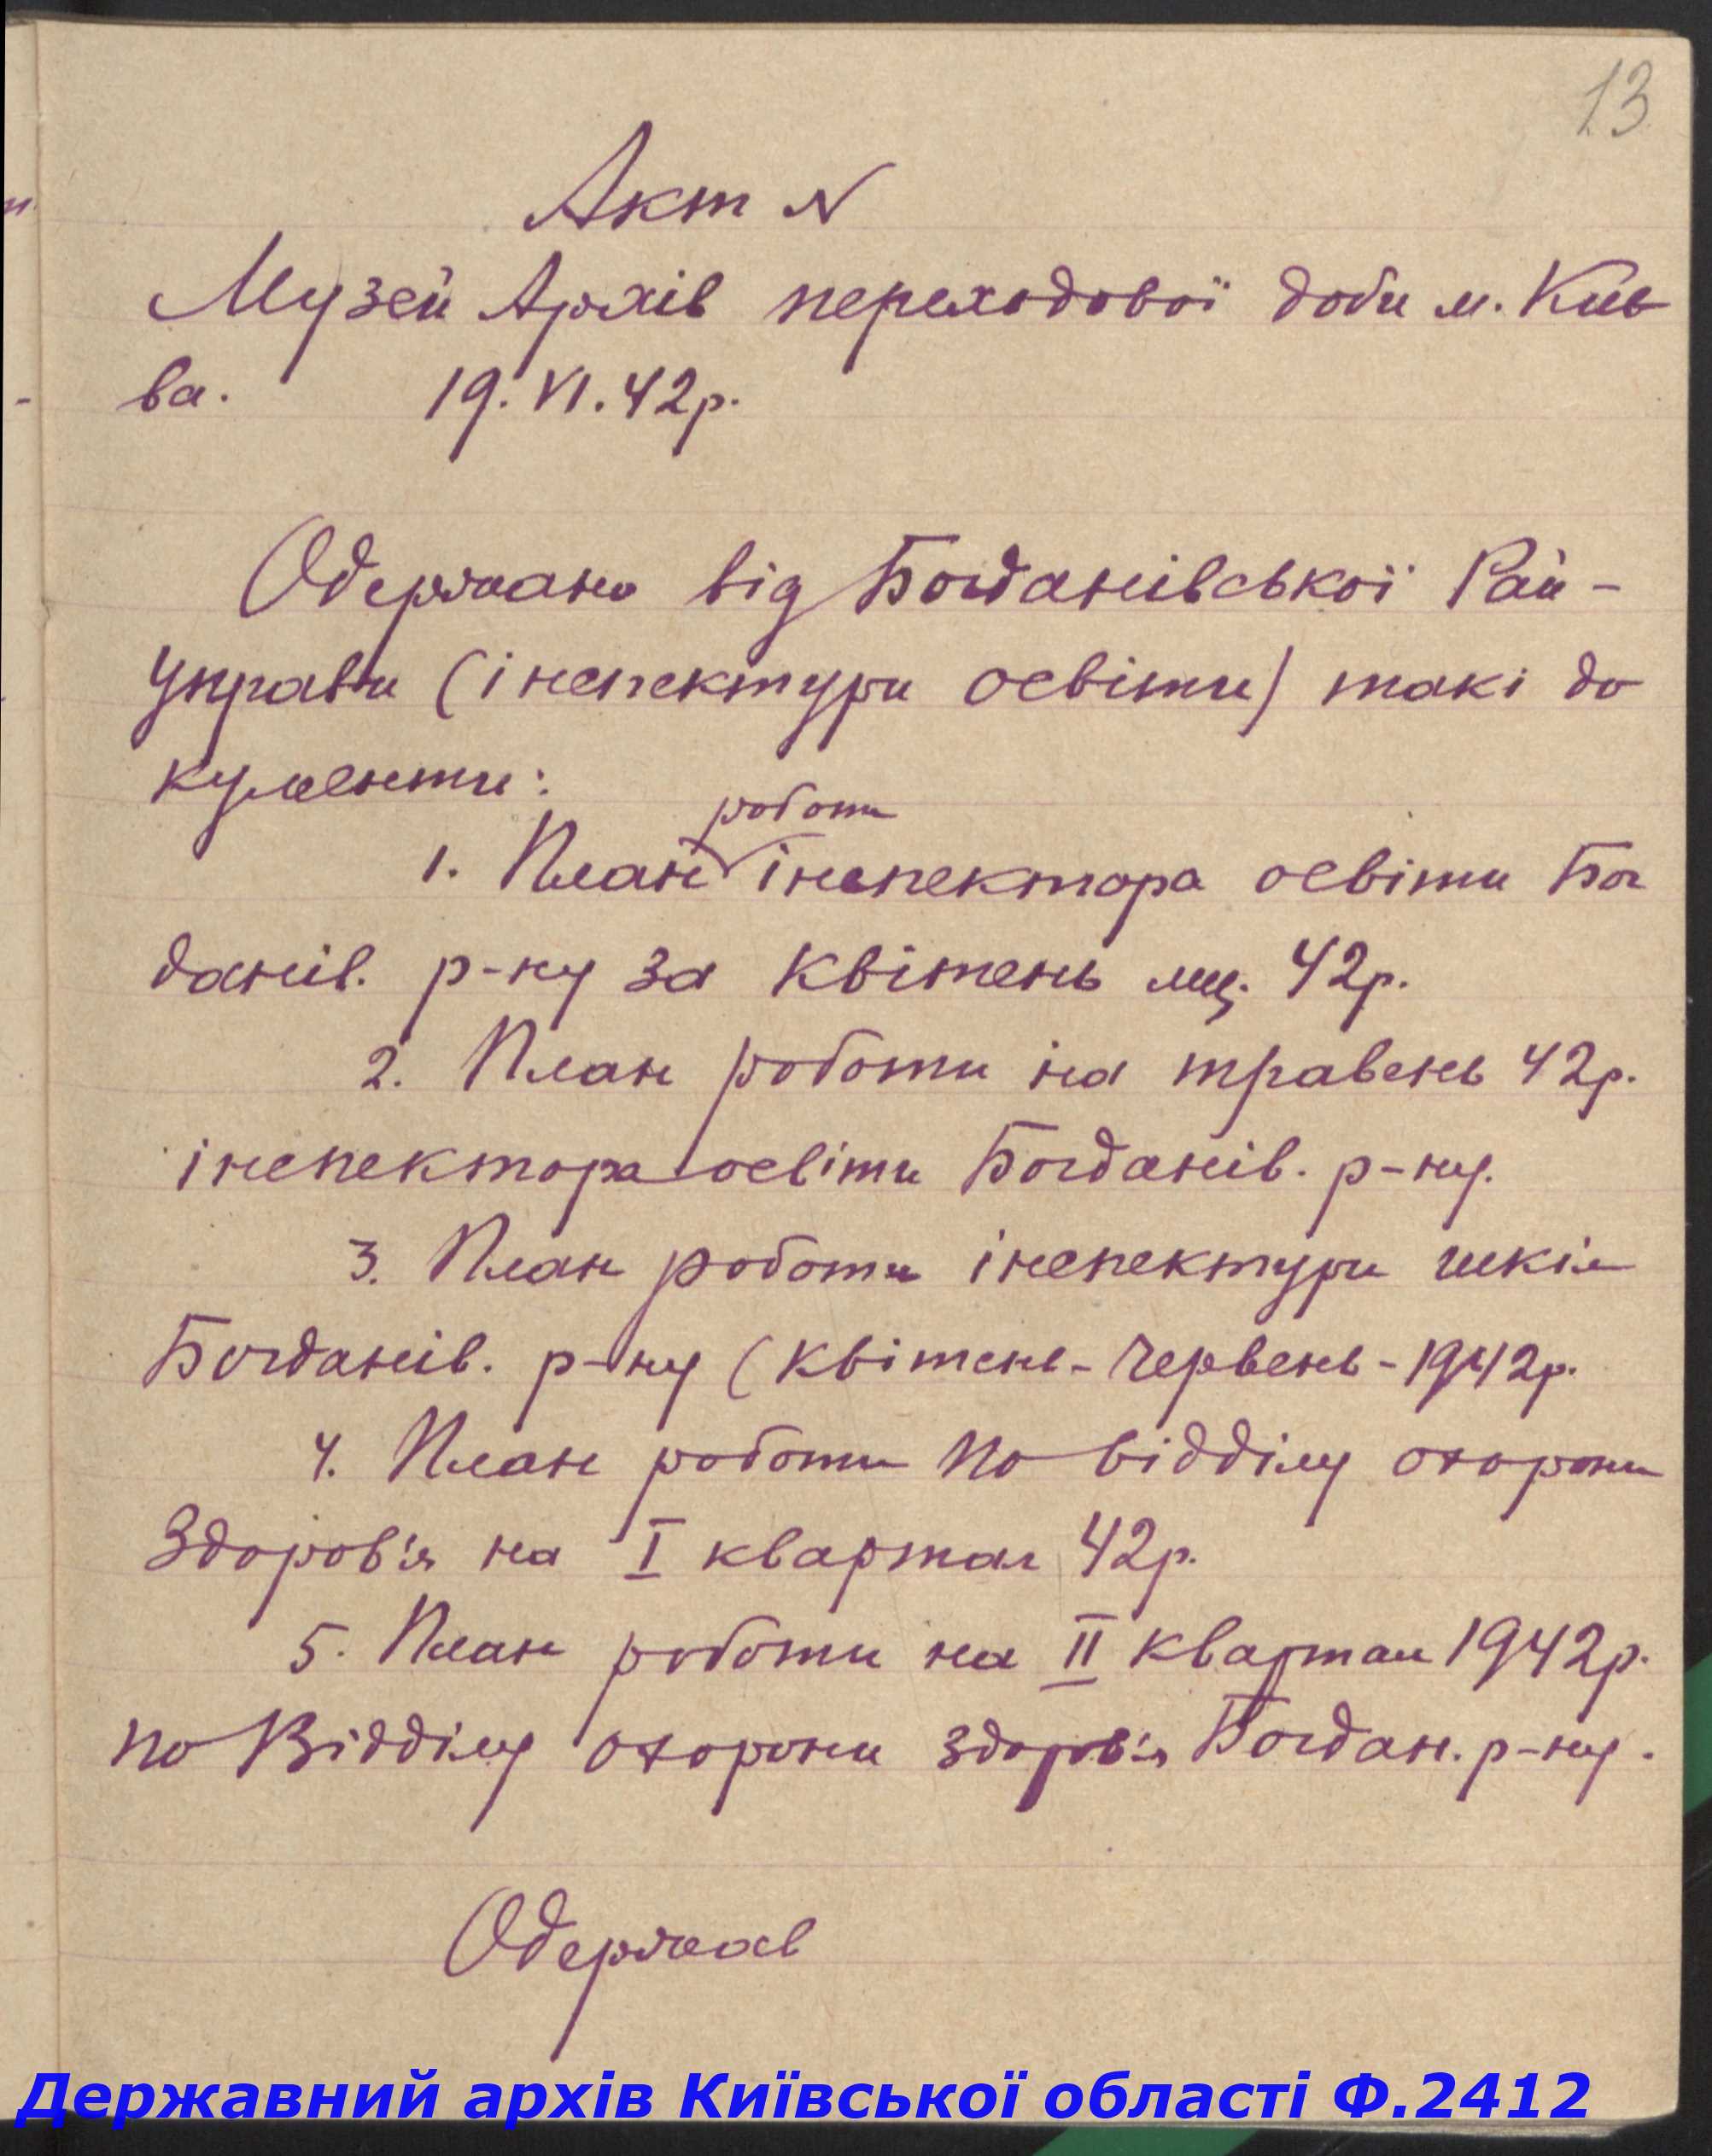 13
Акт N
Музей Архів переходової доби м. Киє
ва. 19.VI.42р.
Одержано від Богданівської Рай-
управи (інспектури освіти) такі до
кументи:
роботи
1. План інспектора освіти Бог
данів. р-ну за квітень міц. 42р.
2. План роботи на травень 42р.
інспектора освіти Богданів. р-ну.
3. План роботи інспектури шкіл
Богданів. р-ну (квітень-червень-1942р.
4. План роботи по відділу охорони
здоров'я на I квартал 42р.
5. План роботи на II квартал 1942р.
по Відділу охорони здоров'я Богдан. р-ну.
Одержав
Державний архів Київської області Ф.2412